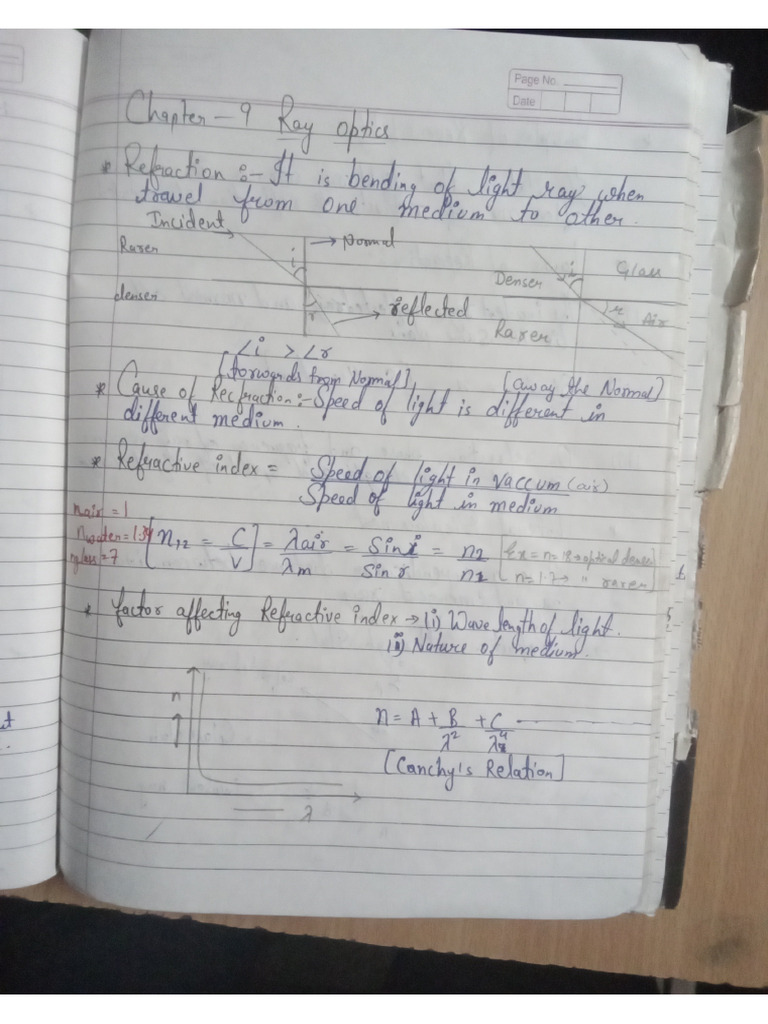 Page No.
Date
Chapter - 9 Ray Optics
* Refraction :- It is bending of light ray when
travel from one medium to other.
Incident
Rarer
i
→ normal
denser
r
→ reflected
Denser
i
Glass
r
Air
Rarer
∠i > ∠r
[towards from Normal]
[away the Normal]
* Cause of Recfraction:- Speed of light is different in
different medium.
* Refractive index = Speed of light in vaccum (air)
Speed of light in medium
n air = 1
n water = 1.34
n glass = 7
[n12 = C/V] = λair/λm = Sin i/Sin r = n2/n1
[Ex = n = 1.8 → optical denser
n = 1.7 → " rarer]
* factor affecting Refractive index → (i) Wave length of light.
(ii) Nature of medium.
n
λ
n = A + B/λ² + C/λ⁴ ------
[Canchy's Relation]